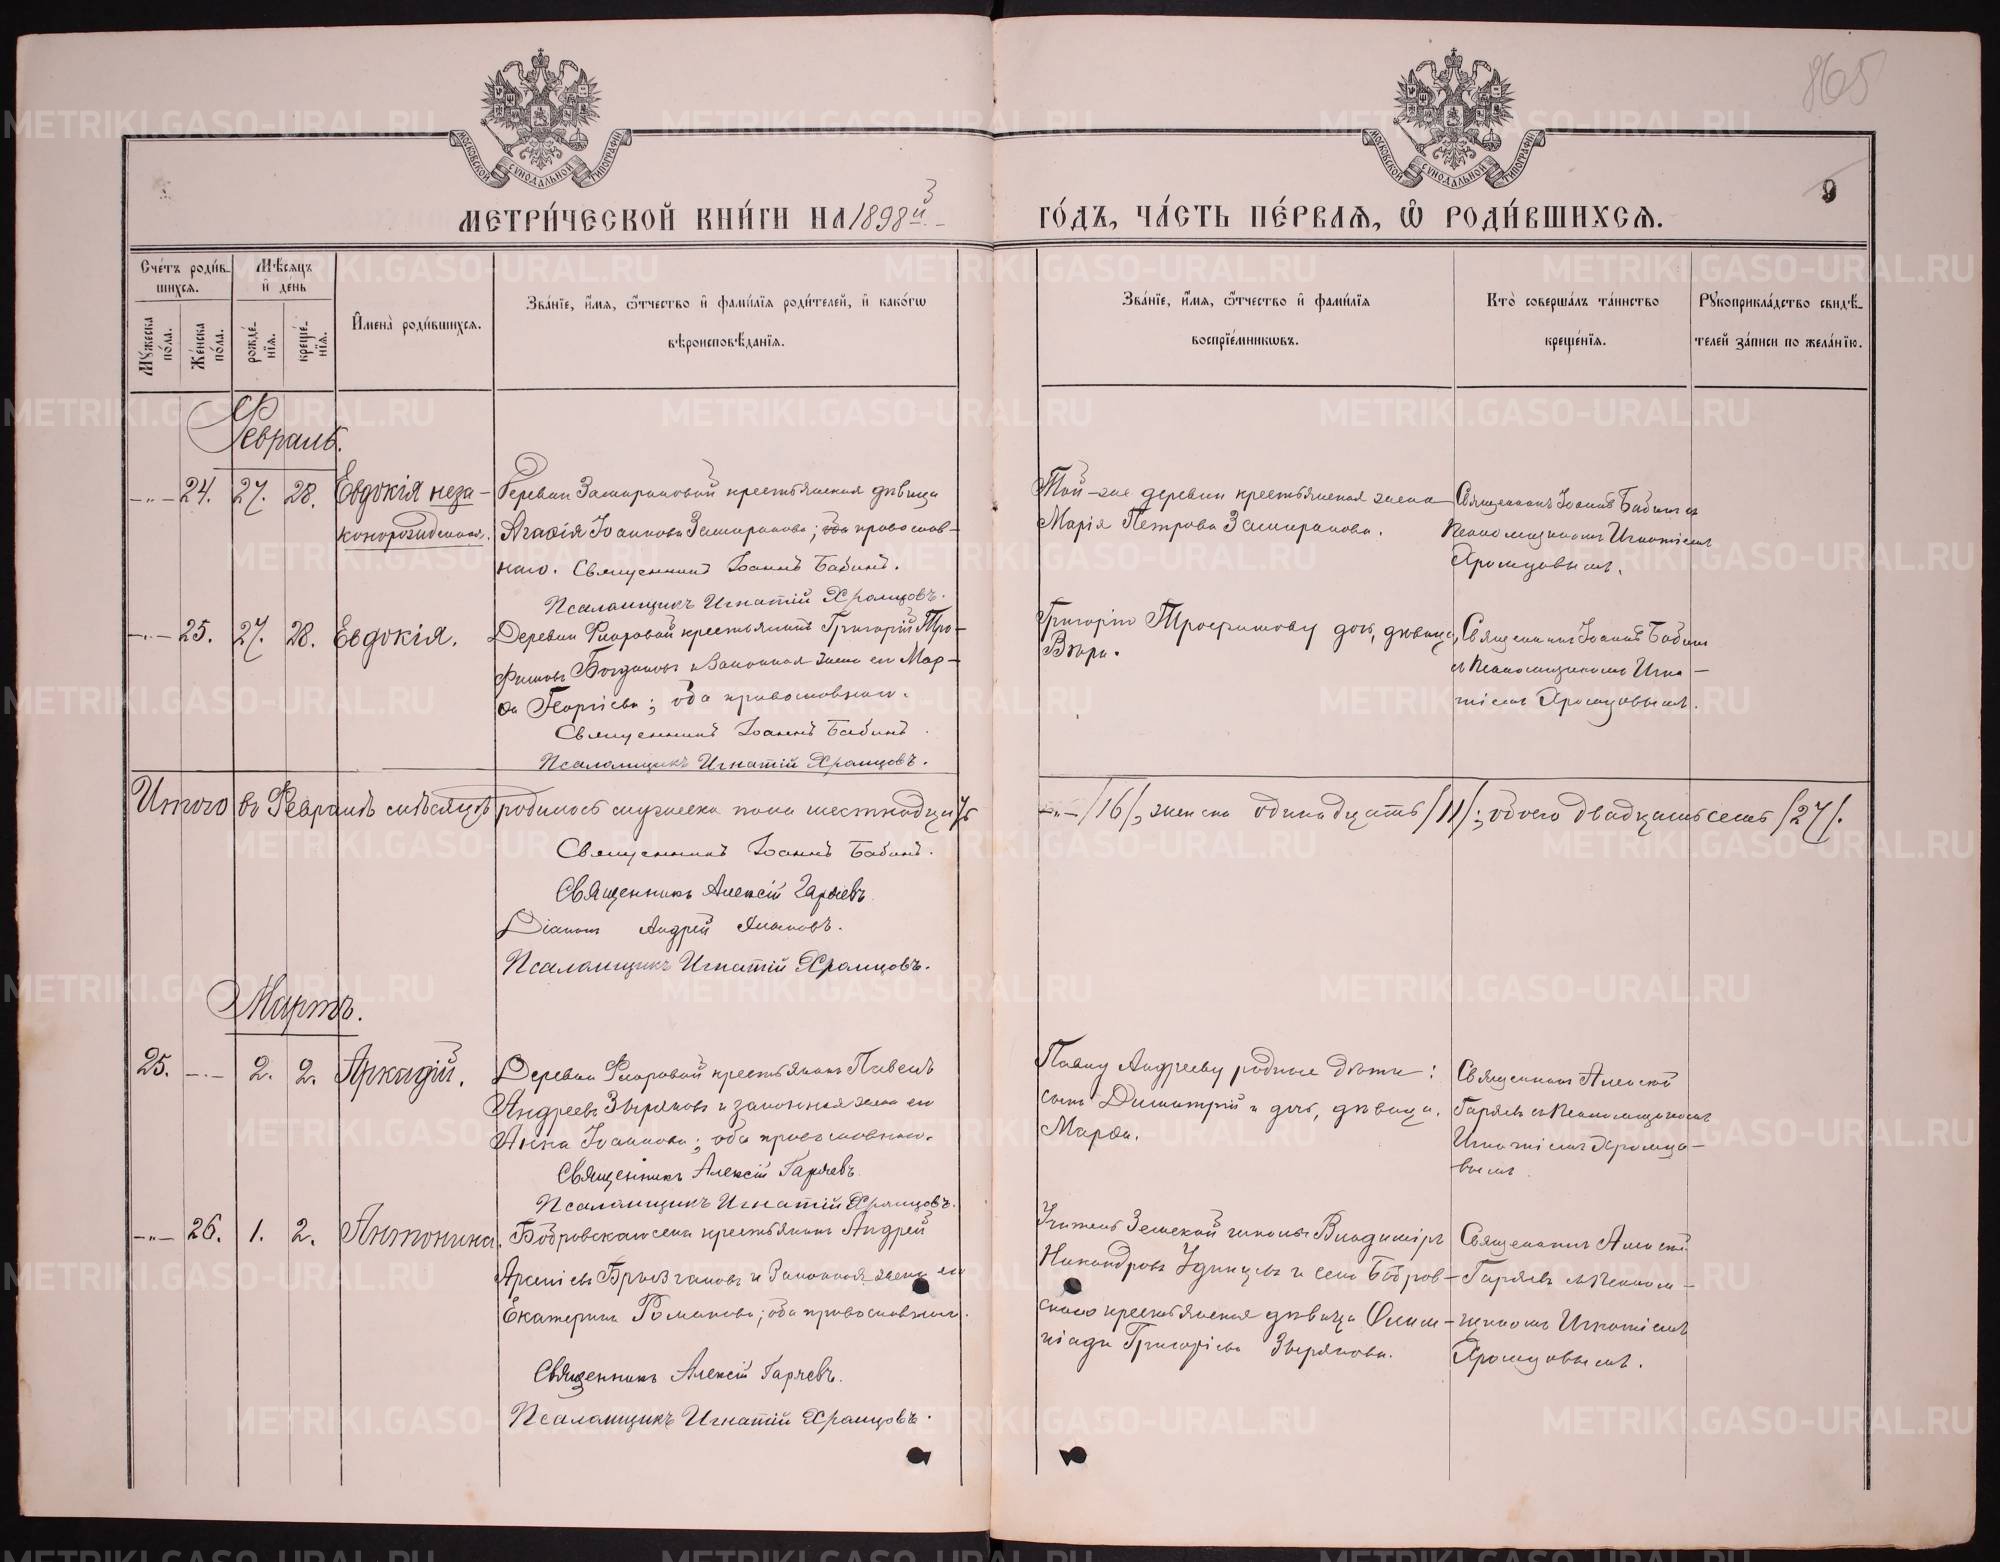 865
9
МОСКОВСКОЙ СѴНОДАЛЬНОЙ ТИПОГРАФІИ
МОСКОВСКОЙ СѴНОДАЛЬНОЙ ТИПОГРАФІИ
МЕТРИ́ЧЕСКОЙ КНИ́ГИ НА 1898й
ГО́ДЪ, ЧА́СТЬ ПЕ́РВАѦ, Ѽ РОДИ́ВШИХСѦ.
Сче́тъ роди́в-
шихсѧ.
Мѣ́сѧцъ
и҆ де́нь
Мꙋ́жеска
по́ла.
Же́нска
по́ла.
рожде́-
нїѧ.
креще́-
нїѧ.
И҆мена̀ роди́вшихсѧ.
Зва́нїе, и҆́мѧ, ѻ҆́тчество и҆ фами́лїѧ роди́телей, и҆ како́гѡ
вѣроисповѣ́данїѧ.
Зва́нїе, и҆́мѧ, ѻ҆́тчество и҆ фами́лїѧ
воспрїе́мникѡвъ.
Кто̀ соверша́лъ та́инство
креще́нїѧ.
Рꙋкоприкла́дство свидѣ́-
телей за́писи по жела́нїю.
Февраль.
—„— 24. 27. 28. Евдокія неза-
конорожденная.
Деревни Замираловой крестьянская дѣвица
Агафія Іоаннова Замиралова; православ-
наго. Священникъ Іоаннъ Бабинъ.
Псаломщикъ Игнатій Храмцовъ.
Той-же деревни крестьянская жена
Марія Петрова Замиралова.
Священникъ Іоаннъ Бабинъ съ
псаломщикомъ Игнатіемъ
Храмцовымъ.
—„— 25. 27. 28. Евдокія.
Деревни Фларовой крестьянинъ Григорій Тро-
фимовъ Богдановъ и законная жена его Мар-
фа Георгіева; оба православнаго.
Священникъ Іоаннъ Бабинъ.
Псаломщикъ Игнатій Храмцовъ.
Григорію Трофимову дочь, дѣвица,
Вѣра.
Священникъ Іоаннъ Бабинъ
съ псаломщикомъ Игна-
тіемъ Храмцовымъ.
Итого въ Февралѣ мѣсяцѣ родилось мужеска пола шестнадцать
—„— /16/, женска одинадцать /11/; обоего двадцать семь /27/.
Священникъ Іоаннъ Бабинъ.
Священникъ Алексій Гаряевъ.
Діаконъ Андрей
Псаломщикъ Игнатій Храмцовъ.
Мартъ.
25. —„— 2. 2. Аркадій.
Деревни Фларовой крестьянинъ Павелъ
Андреевъ Звѣряковъ и законная жена его
Анна Іоаннова; оба православнаго.
Священникъ Алексій Гаряевъ.
Псаломщикъ Игнатій Храмцовъ.
Павлу Андрееву родные дѣти:
сынъ Димитрій и дочь, дѣвица,
Марфа.
Священникъ Алексій
Гаряевъ съ псаломщикомъ
Игнатіемъ Храмцо-
вымъ.
—„— 26. 1. 2. Антонина.
Бобровскаго села крестьянинъ Андрей
Арсеніевъ Брызгаловъ и законная жена его
Екатерина Романова; оба православнаго.
Священникъ Алексій Гаряевъ.
Псаломщикъ Игнатій Храмцовъ.
Учитель Земской школы Владиміръ
Никандровъ Удинцевъ и села Бобров-
скаго крестьянская дѣвица Олим-
піада Григоріева Звѣрякова.
Священникъ Алексій
Гаряевъ съ псалом-
щикомъ Игнатіемъ
Храмцовымъ.
METRIKI.GASO-URAL.RU